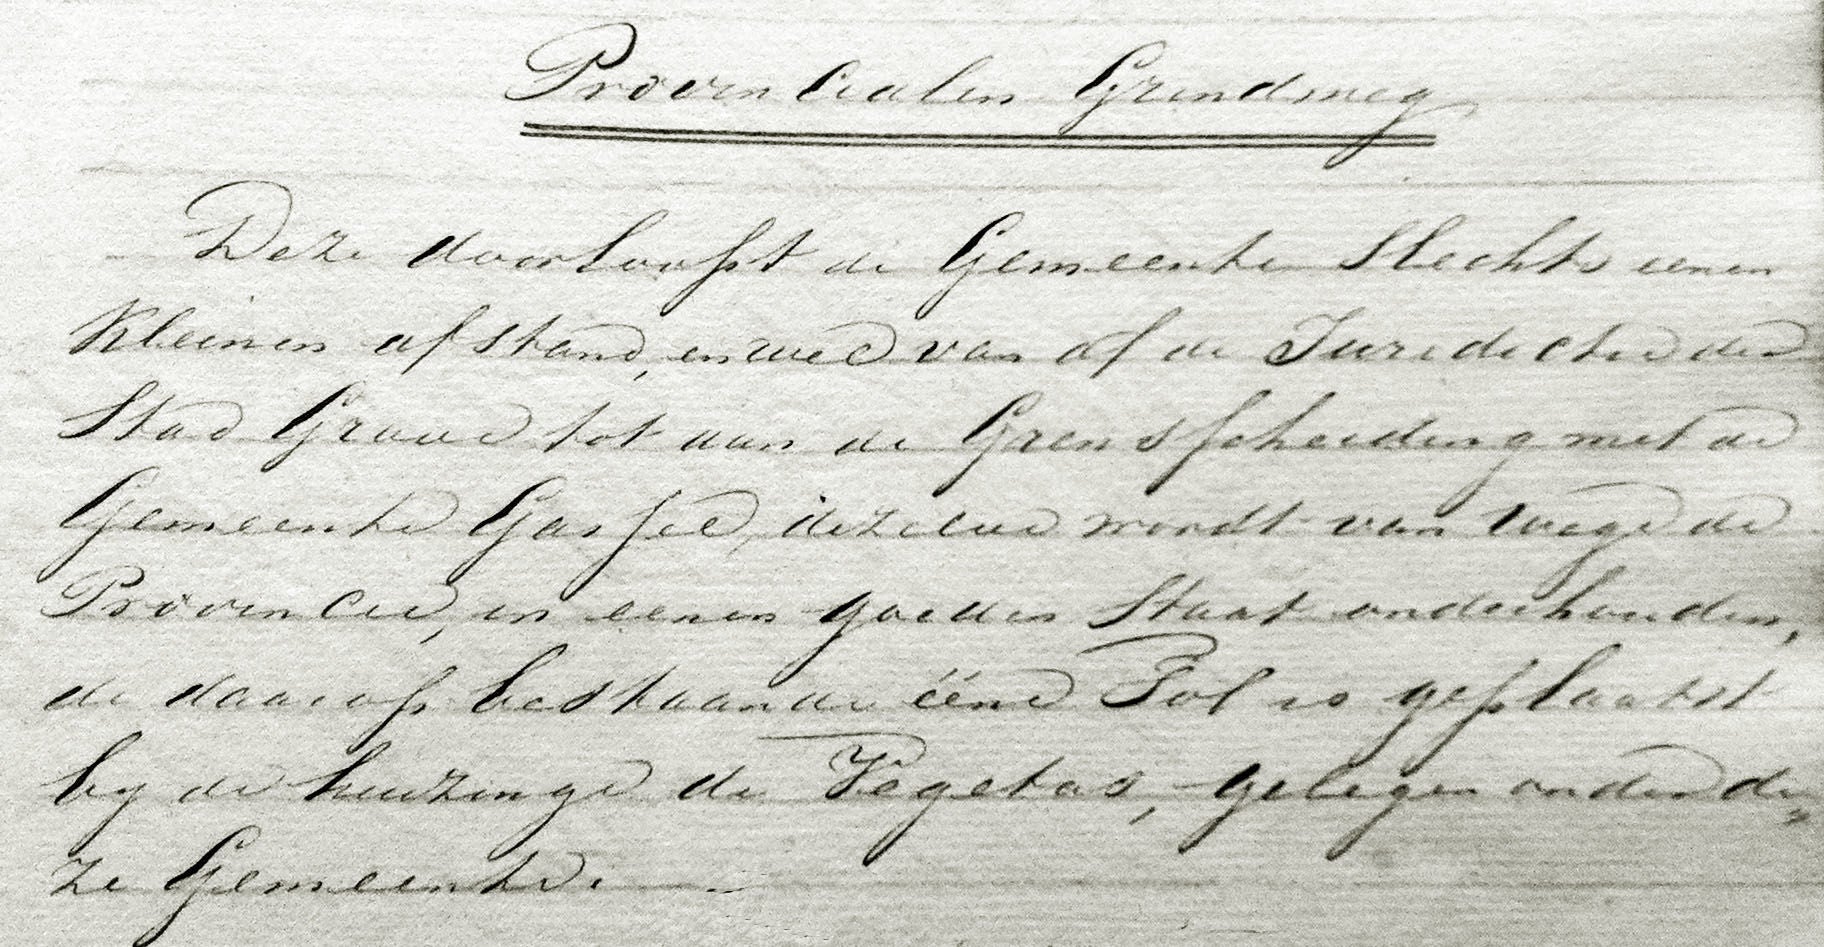 Provincialen Grindweg
Deze doorloopt de Gemeente slechts eenen
kleinen afstand, en wel van af de Juridictie der
Stad Grave tot aan de Grensscheiding met de
Gemeente Gassel, dezelve wordt van wege de
Provincie, in eenen goeden Staat onderhouden,
de daarop bestaande ééne Tol is geplaatst
by de huizinge de Vegetas, gelegen onder de„
ze Gemeente.